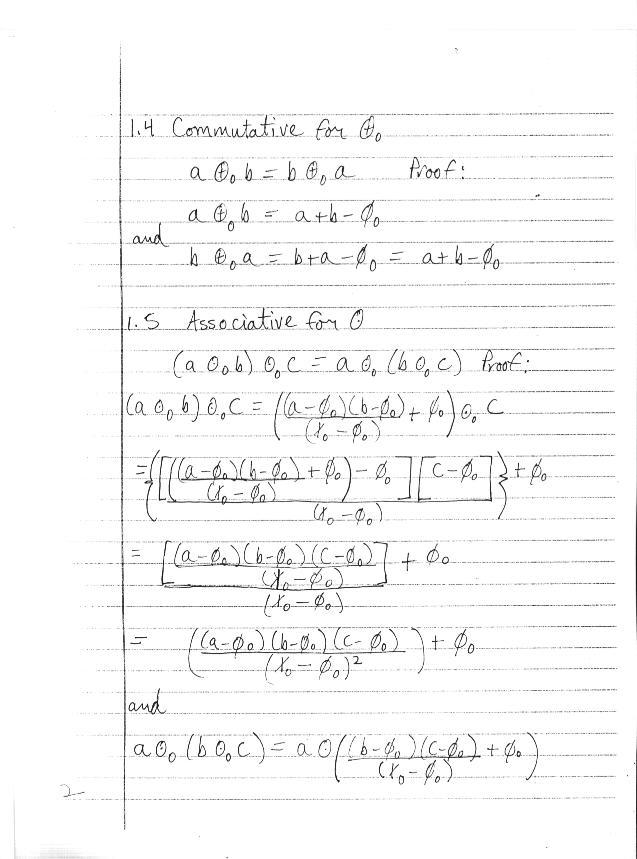 1.4 Commutative for ⊕₀
a ⊕₀ b = b ⊕₀ a Proof:
a ⊕₀ b = a+b-∅₀
and
b ⊕₀ a = b+a-∅₀ = a+b-∅₀
1.5 Associative for ⊙
(a ⊙₀ b) ⊙₀ C = a ⊙₀ (b ⊙₀ c) Proof:
(a ⊙₀ b) ⊙₀ C = ((a-∅₀)(b-∅₀)/(γ₀-∅₀) + ∅₀) ⊙₀ C
= {[((a-∅₀)(b-∅₀)/(γ₀-∅₀) + ∅₀) - ∅₀][C-∅₀]/(γ₀-∅₀)} + ∅₀
= [(a-∅₀)(b-∅₀)(C-∅₀)/(γ₀-∅₀)]/(γ₀-∅₀) + ∅₀
= ((a-∅₀)(b-∅₀)(c-∅₀)/(γ₀-∅₀)²) + ∅₀
and
a ⊙₀ (b ⊙₀ c) = a ⊙ ((b-∅₀)(c-∅₀)/(γ₀-∅₀) + ∅₀)
2